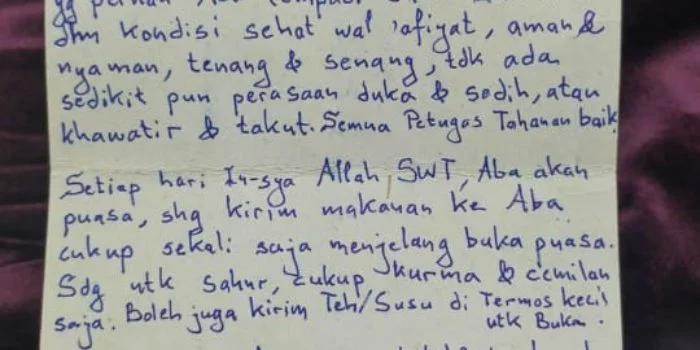 dlm kondisi sehat wal 'afiyat, aman &
nyaman, tenang & senang, tdk ada
sedikit pun perasaan duka & sedih, atau
khawatir & takut. Semua Petugas Tahanan baik
Setiap hari In-sya Allah SWT, Aba akan
puasa, shg kirim makanan ke Aba
cukup sekali saja menjelang buka puasa.
Sdg utk Sahur, cukup kurma & cemilan
saja. Boleh juga kirim Teh/Susu di Termos kecil
utk Buka.